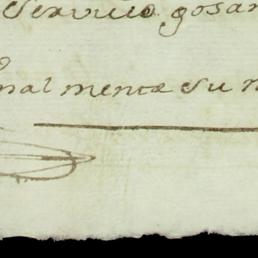 servicio gosar
nal mente su